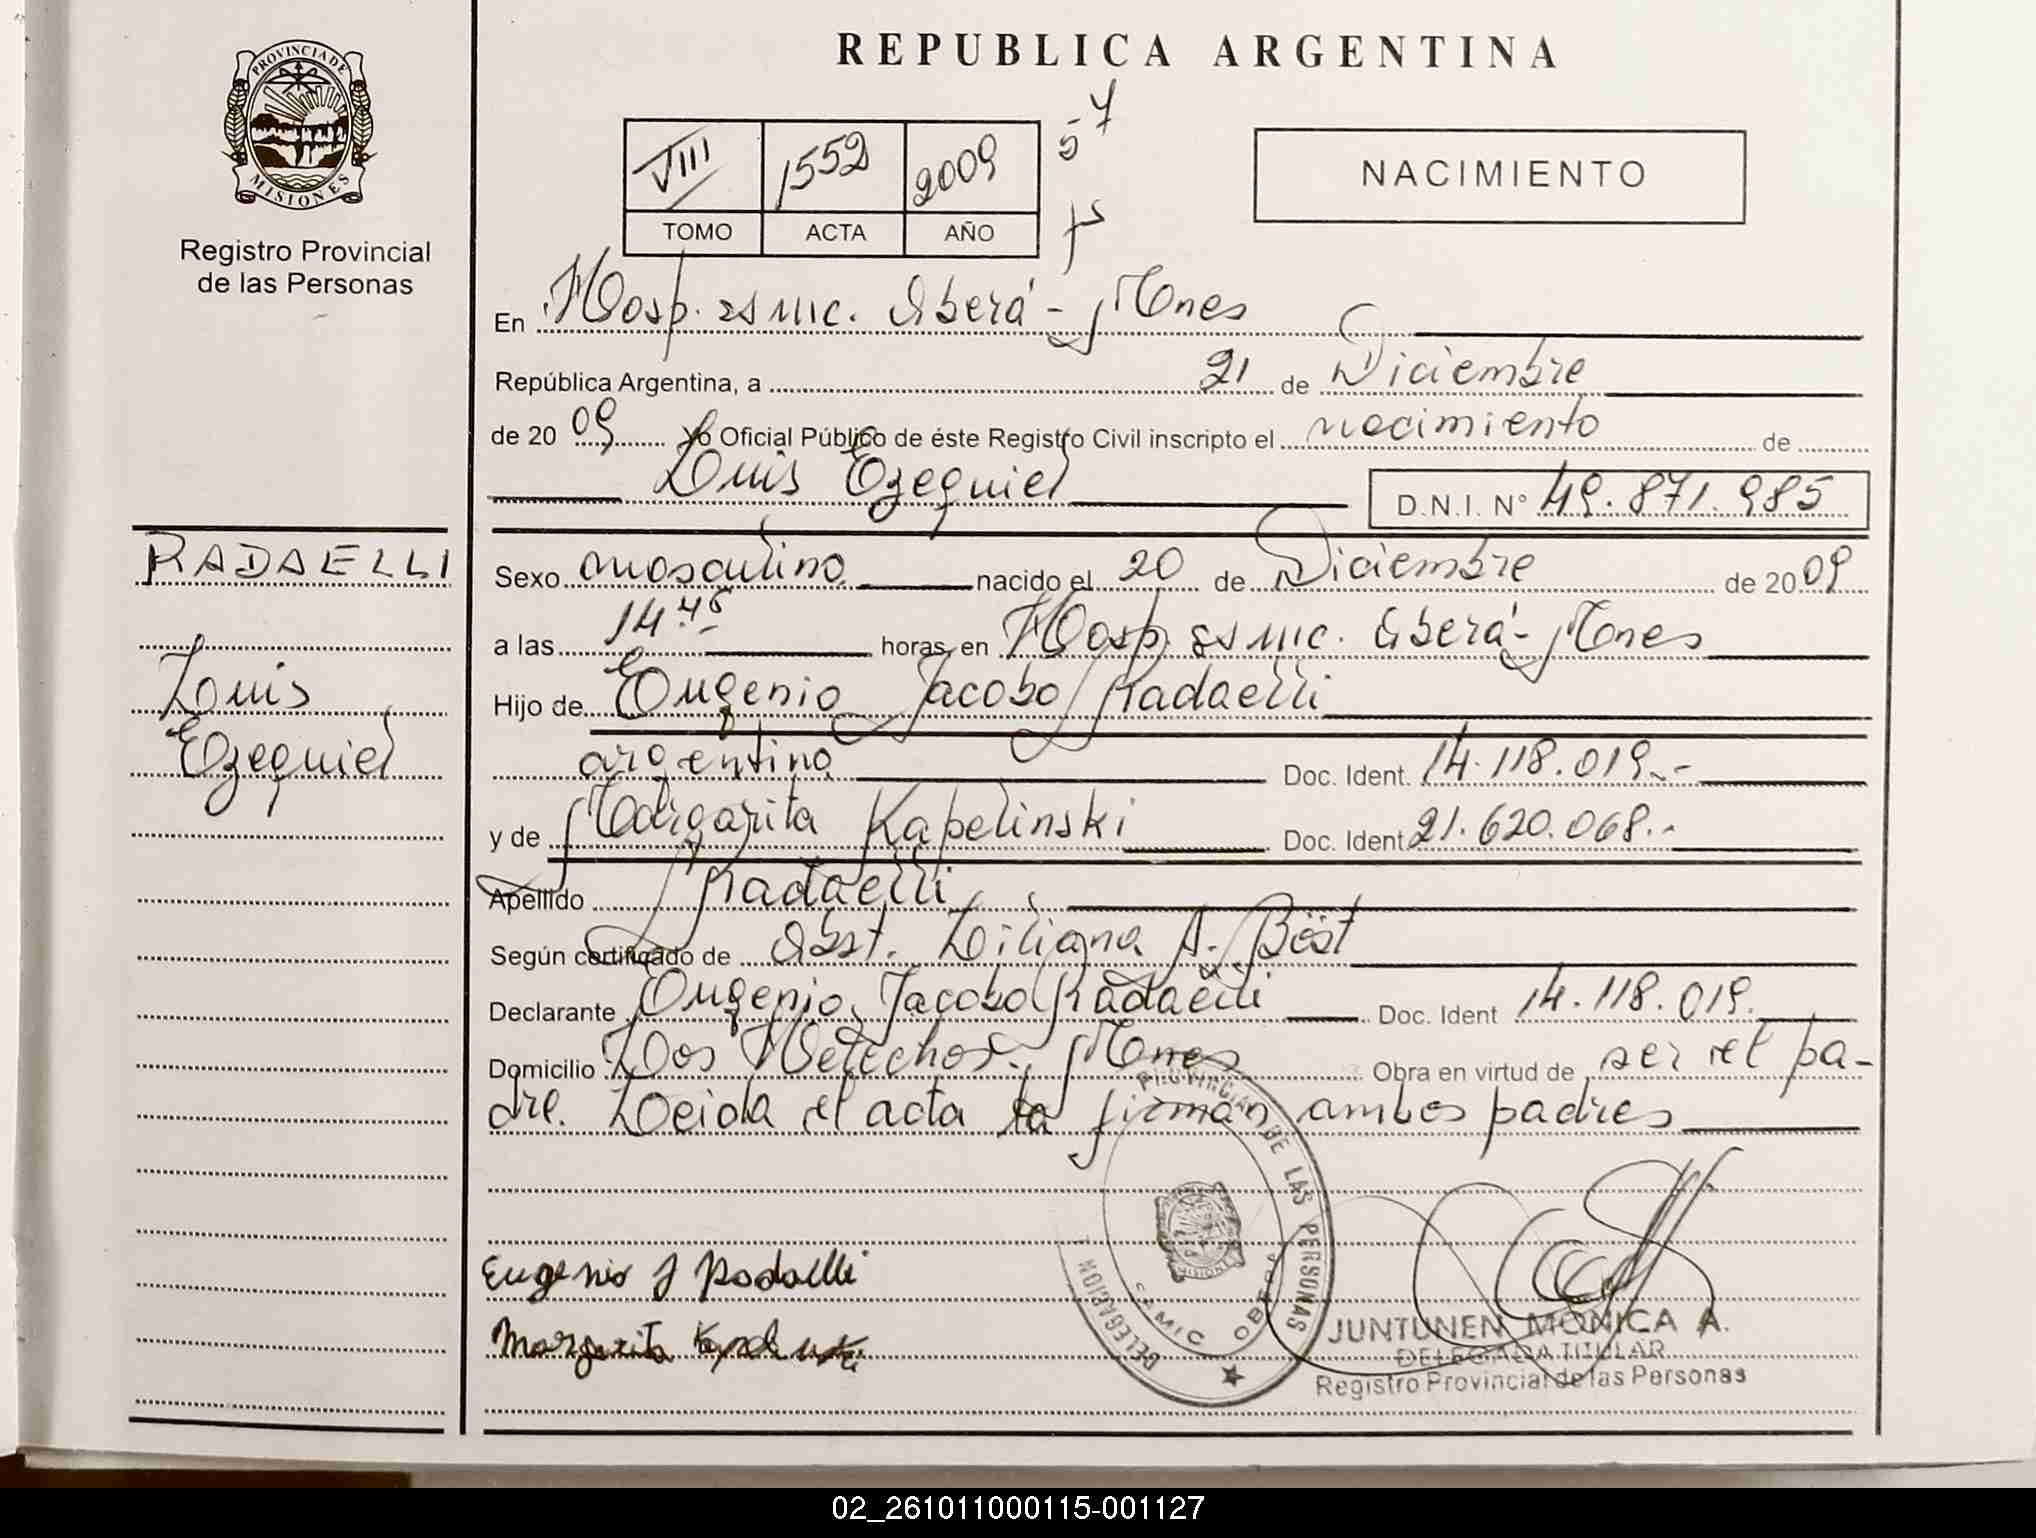 REPUBLICA ARGENTINA
PROVINCIA DE
MISIONES
Registro Provincial
de las Personas
VIII 1552 2009
TOMO ACTA AÑO
57
NACIMIENTO
En Hosp. SAMIC. Oberá - Mnes
República Argentina, a 21 de Diciembre
de 2009 Yo Oficial Público de éste Registro Civil inscripto el nacimiento de
Luis Ezequiel D.N.I. N° 49.871.985
RADAELLI
Luis
Ezequiel
Sexo masculino nacido el 20 de Diciembre de 2009
a las 14.45 horas, en Hosp. SAMIC. Oberá - Mnes
Hijo de Eugenio Jacobo Radaelli
argentino Doc. Ident. 14.118.019.-
y de Margarita Kapelinski Doc. Ident. 21.620.068.-
Apellido Radaelli
Según certificado de Obst. Liliana A. Böst
Declarante Eugenio Jacobo Radaelli Doc. Ident 14.118.019.
Domicilio Dos Helechos. Mnes Obra en virtud de ser el pa-
dre. Leida el acta la firman ambos padres
Eugenio J Radaelli
Margarita Kapelinski
PROVINCIAL DE LAS PERSONAS
DELEGACION
SAMIC OBERA
MISIONES
JUNTUNEN MONICA A.
DELEGADA TITULAR
Registro Provincial de las Personas
02_261011000115-001127